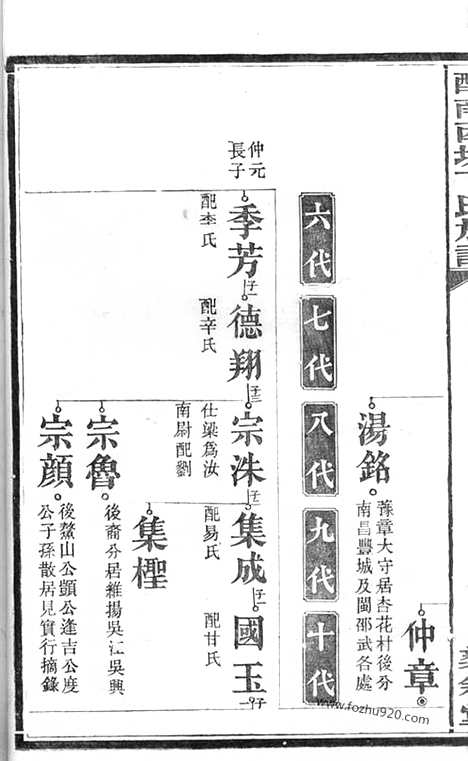 仲章
湯銘
豫章大守居杏花村後分
南昌豐城及閩邵武各處
六代
七代
八代
九代
十代
仲元
長子
季芳
子一
配李氏
德翔
子三
配辛氏
宗洙
子二
仕梁為汝
南尉配劉
集成
子一
配易氏
國玉
子一
配甘氏
集檉
宗魯
後裔分居維揚吳江吳興
宗顔
後鰲山公顗公逢吉公度
公子孫散居見實行摘錄
www.fozhu920.com